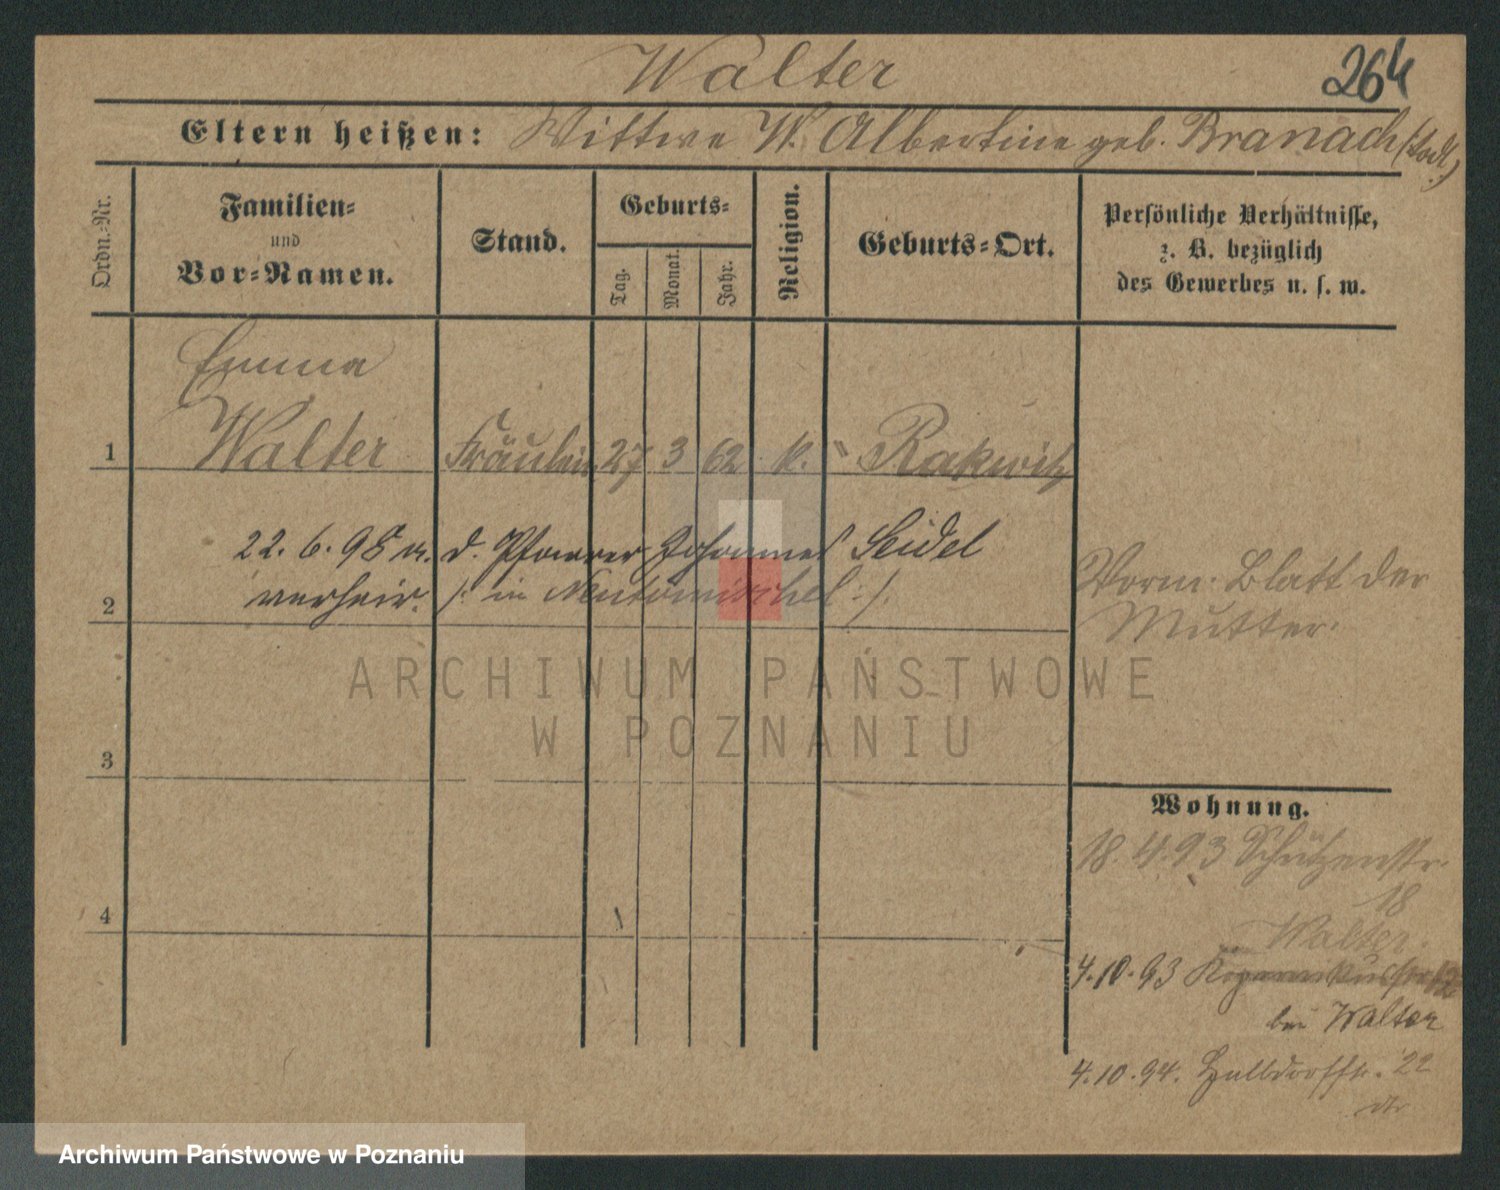 Walter
264
Eltern heißen: Wittwe W. Albertine geb. Branach (todt)
Ordn.-Nr.
Familien-
und
Vor-Namen.
Stand.
Geburts-
Tag.
Monat.
Jahr.
Religion.
Geburts-Ort.
Persönliche Verhältnisse,
z. B. bezüglich
des Gewerbes u. s. w.
Emma
1 Walter Fräulein 27 3 62 Rakwitz
22. 6. 98 m. d. Pfarrer Johannes Seidel
2 verheir. /: in Neutomischel :/.
Vorm. Blatt der
Mutter.
ARCHIWUM PAŃSTWOWE
W POZNANIU
3
Wohnung.
18. 4. 93 Schützenstr.
18
4
Walter.
4. 10. 93
bei Walter
4. 10. 94. Halbdorfstr. 22
Archiwum Państwowe w Poznaniu